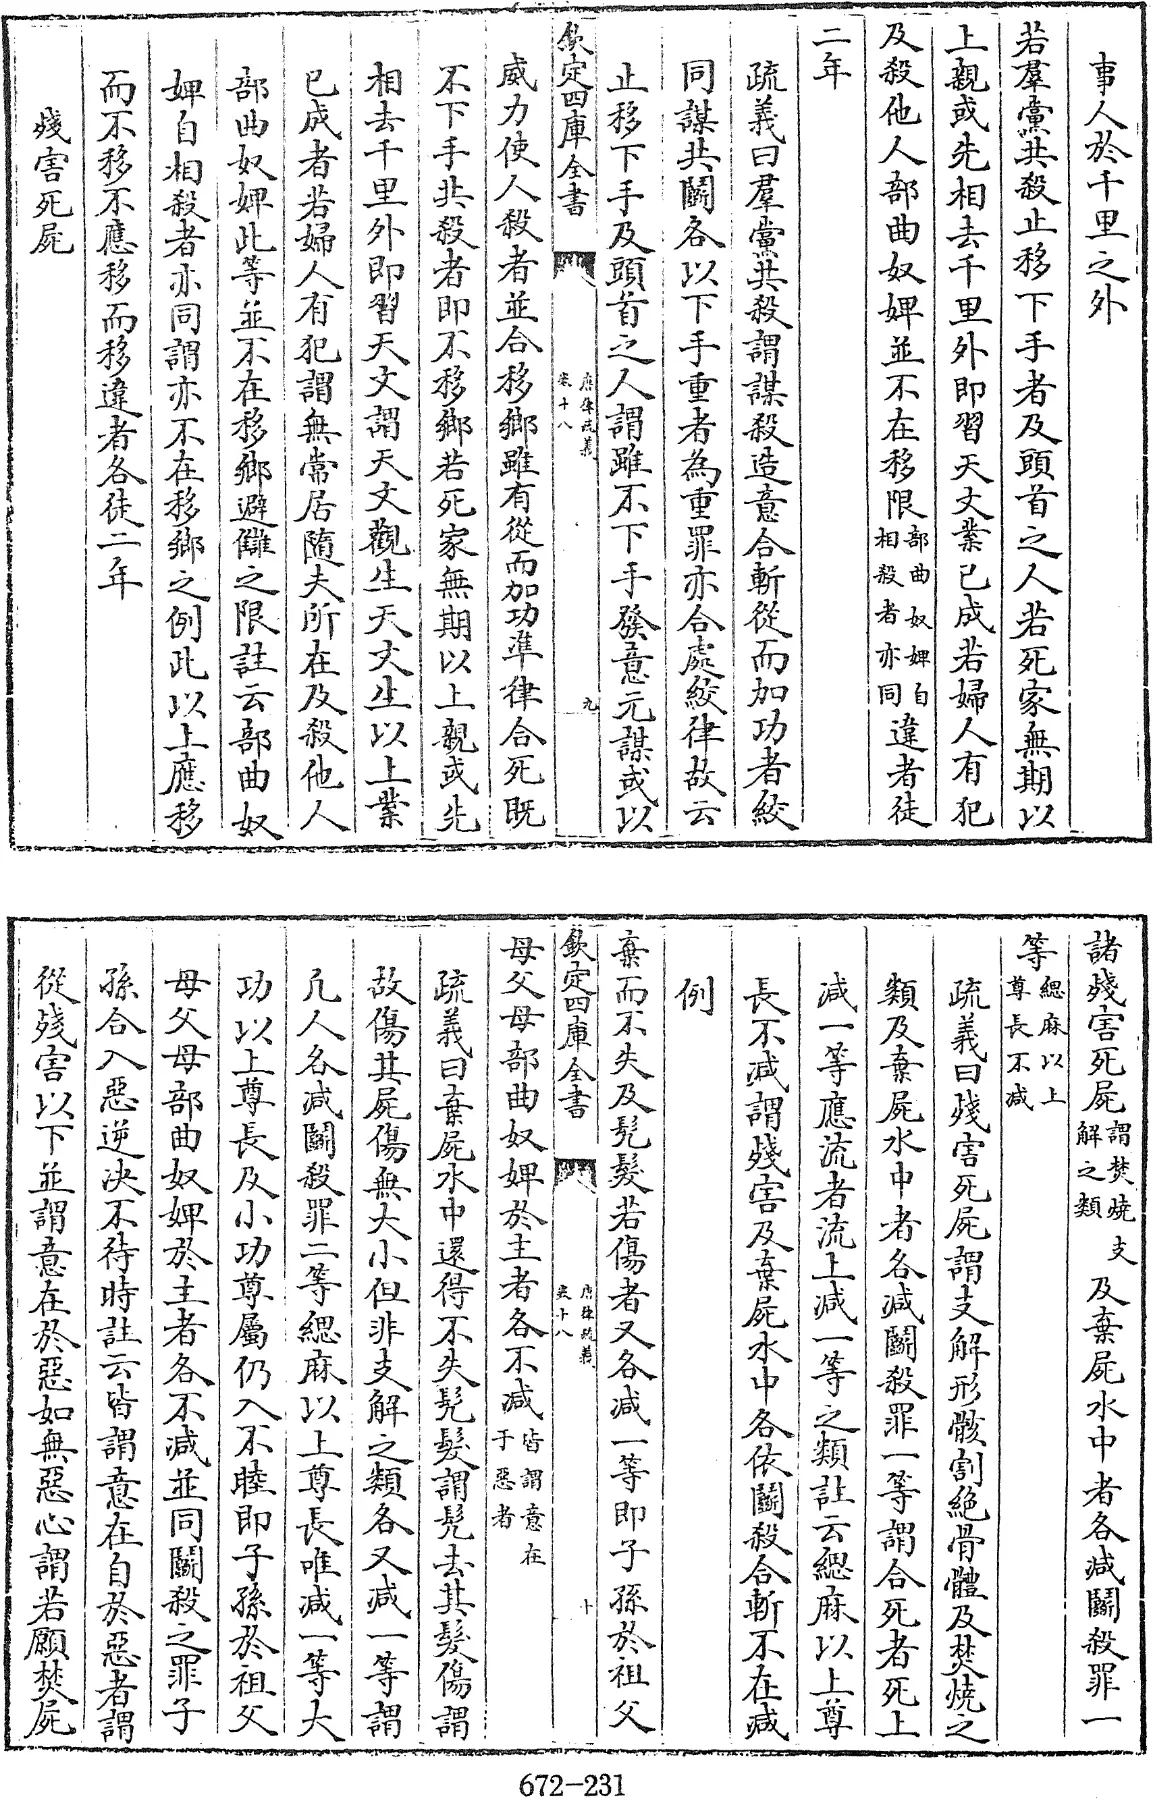 事人於千里之外
若羣黨共殺止移下手者及頭首之人若死家無期以
上親或先相去千里外即習天文業已成若婦人有犯
及殺他人部曲奴婢並不在移限部曲奴婢自相殺者亦同違者徒
二年
疏義曰羣黨共殺謂謀殺造意合斬從而加功者絞
同謀共鬭各以下手重者為重罪亦合處絞律故云
止移下手及頭首之人謂雖不下手發意元謀或以
欽定四庫全書
唐律疏義
卷十八
九
威力使人殺者並合移鄉雖有從而加功準律合死既
不下手共殺者即不移鄉若死家無期以上親或先
相去千里外即習天文謂天文觀生天文生以上業
已成者若婦人有犯謂無常居隨夫所在及殺他人
部曲奴婢此等並不在移鄉避讎之限註云部曲奴
婢自相殺者亦同謂亦不在移鄉之例此以上應移
而不移不應移而移違者各徒二年
殘害死屍
諸殘害死屍謂焚燒支解之類及棄屍水中者各減鬭殺罪一
等緦麻以上尊長不減
疏義曰殘害死屍謂支解形骸割絶骨體及焚燒之
類及棄屍水中者各減鬭殺罪一等謂合死者死上
減一等應流者流上減一等之類註云緦麻以上尊
長不減謂殘害及棄屍水中各依鬭殺合斬不在減
例
棄而不失及髠髮若傷者又各減一等即子孫於祖父
欽定四庫全書
唐律疏義
卷十八
十
母父母部曲奴婢於主者各不減皆謂意在于惡者
疏義曰棄屍水中還得不失髠髮謂髠去其髮傷謂
故傷其屍傷無大小但非支解之類各又減一等謂
凡人各減鬭殺罪二等緦麻以上尊長唯減一等大
功以上尊長及小功尊屬仍入不睦即子孫於祖父
母父母部曲奴婢於主者各不減並同鬭殺之罪子
孫合入惡逆決不待時註云皆謂意在自於惡者謂
從殘害以下並謂意在於惡如無惡心謂若願焚屍
672-231